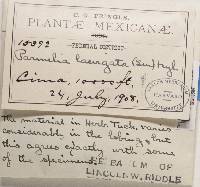 C. G. PRINGLE,
PLANTÆ MEXICANÆ.
FEDERAL DISTRICT
10392
Parmelia laevigata (Sm) Nyl.
Cima, 10000 ft.
24 July, 1908.
The material in Herb. Tuck. varies
considerably in the lobing, but
this agrees exactly with some
of the specimens
LINCOLN W. RIDDLE